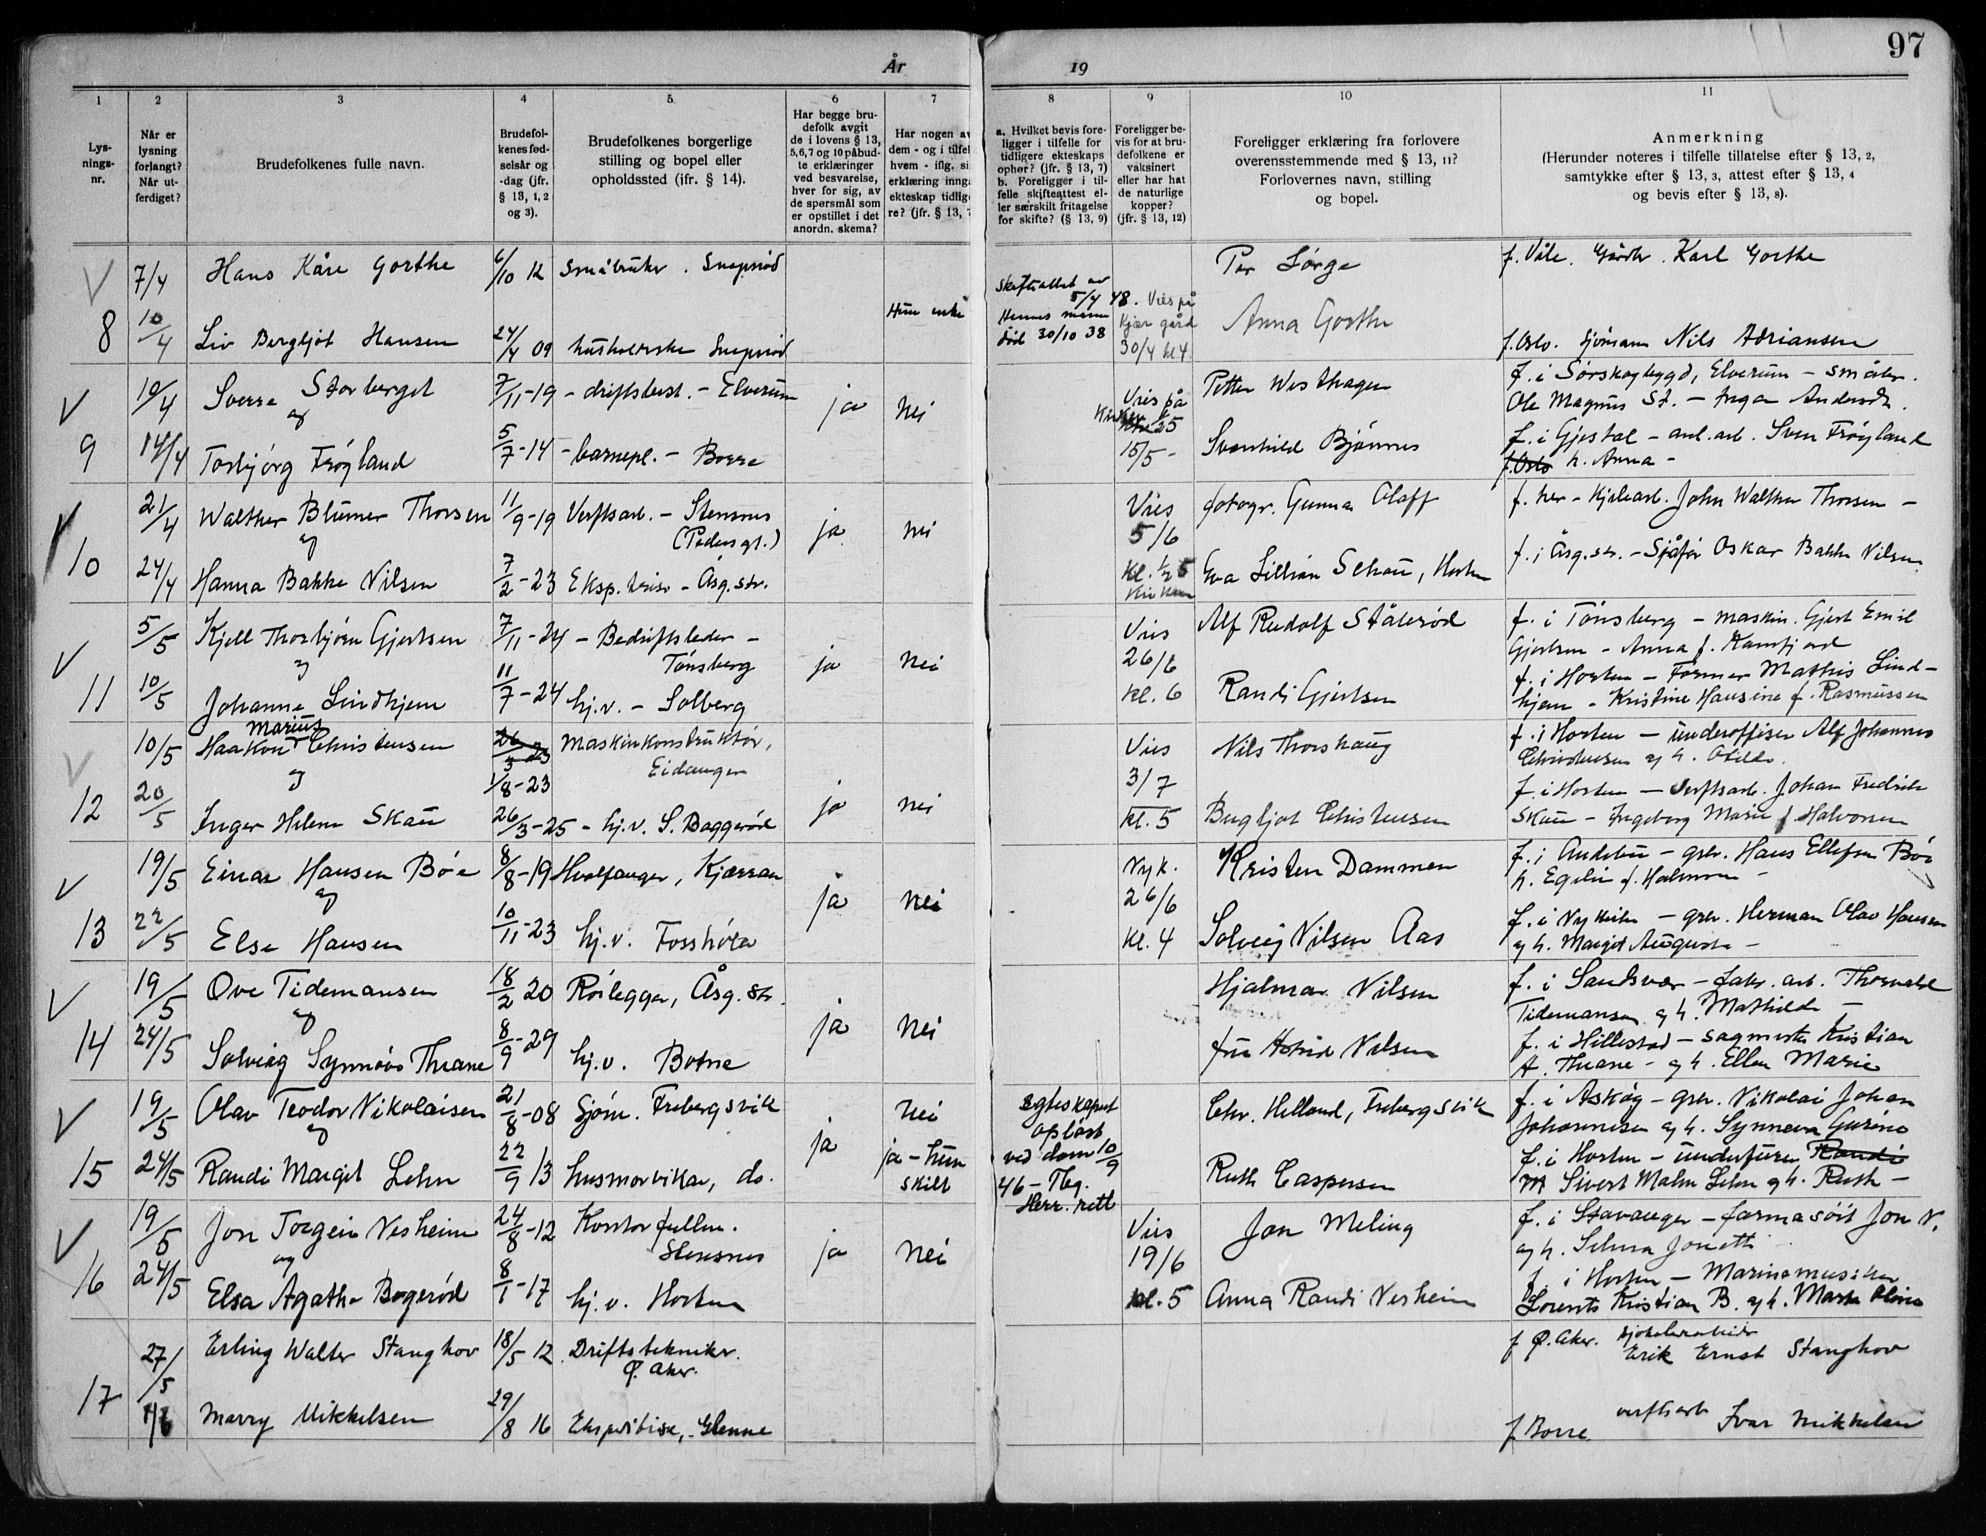 97
År
19
1 2 3 4 5 6 7 8 9 10 11
Lys-
nings-
nr.
Når er
lysning
forlangt?
Når ut-
ferdiget?
Brudefolkenes fulle navn.
Brudefol-
kenes fød-
selsår og
-dag (jfr.
§ 13, 1, 2
og 3).
Brudefolkenes borgerlige
stilling og bopel eller
opholdssted (ifr. § 14).
Har begge bru-
defolk avgit
de i lovens § 13,
5,6,7 og 10 påbud-
te erklæringer
ved besvarelse,
hver for sig, av
de spørsmål som
er opstillet i det
anordn. skema?
Har nogen av
dem - og i tilfel
hvem - iflg. si
erklæring innga
ekteskap tidlige
re? (jfr. § 13, 7
a. Hvilket bevis fore-
ligger i tilfelle for
tidligere ekteskaps
ophør? (jfr. § 13, 7)
b. Foreligger i til-
felle skifteattest el-
ler særskilt fritagelse
for skifte? (§ 13, 9)
Foreligger be-
vis for at bru-
defolkene er
vaksinert
eller har hat
de naturlige
kopper?
(jfr. § 13, 12)
Foreligger erklæring fra forlovere
overensstemmende med § 13, 11?
Forlovernes navn, stilling
og bopel.
Anmerkning
(Herunder noteres i tilfelle tillatelse efter § 13, 2,
samtykke efter § 13, 3, attest efter § 13, 4
og bevis efter § 13, 8).
7/4 Hans Kåre Gorthe 6/10 12 Småbruker. Snepsrød Per Lørge f. Våle. Gårdbr. Karl Gorthe
8 10/4 Liv Bergljot Hansen 24/4 09 husholderske Snepsrød Hun enke
Skifteattest av
5/4 48.
Hennes mann
død 30/10 38
Vies på
Kjær gård
30/4 kl 4.
Anna Gorthe f. Oslo. Sjømann Nils Adriansen
10/4 Sverre Storberget 7/11-19 - driftsbest. - Elverum ja nei
og
Vies på
Kirken
kl. 25
15/5 -
Petter Westhagen f. i Sørskogbygd, Elverum - småbr.
Ole Magnus St. - Inga Andersdt.
9 14/4 Torbjørg Frøyland 5/7-14 - barnepl. - Borre Svanhild Bjønnes f. i Gjestal - anl.arb. Sven Frøyland
f. Oslo h. Anna -
21/4 Walther Blumer Thorsen 11/9-19 Verftsarb. - Stensnes
(Pedersgt.) ja nei
og
Vies
5/6
Kl. 1/2 5
Kirken
fotogr. Gunnar Olaff f. her - Kjelearb. John Walther Thorsen -
10 24/4 Hanna Bakke Nilsen 7/2-23 Eksp.trise - Åsg.str. Eva Lillian Schau, Horten f. i Åsg.str. - Sjåfør Oskar Bakke Nilsen
5/5 Kjell Thorbjørn Gjertsen 7/11-24 - Bedriftsleder -
Tønsberg ja nei
og
Vies
26/6
kl. 6
Alf Rudolf Stålerød f. i Tønsberg - maskin. Gjert Emil
Gjertsen - Anna f. Kamfjord
11 10/5 Johanne Lindhjem 11/7-24 hj.v. - Solberg Randi Gjertsen f. i Horten - Former Mathis Lind-
hjem - Kristine Hansine f. Rasmussen
Marius
10/5 Haakon Christensen 26/3-23
1/8-23 Maskinkonstruktør,
Eidanger ja nei
og
Vies
3/7
kl. 5
Nils Thorshaug f. i Horten - underoffiser Alf Johannes
Christensen og h. Otilde.
12 20/5 Inger Helene Skau 26/3-25 - hj.v. S. Baggerød Bergljot Christensen f. i Horten - Verftsarb. Johan Fredrik
Skau - Ingeborg Marie f Halvorsen
19/5 Einar Hansen Bøe 8/8-19 Hvalfanger, Kjærran ja nei
og
Nyk.
26/6
kl. 4
Kristen Dammen f. i Andebu - grbr. Hans Ellefsen Bøe
h. Egelin f. Halvorsen -
13 22/5 Else Hansen 10/11-23 hj.v. Fosshøla Solveig Nilsen Aas f. i Nykirke - grbr. Herman Olav Hansen
og h. Margit Augusta -
19/5 Ove Tidemansen 18/2 20 Rørlegger, Åsg. str. ja nei
og
Hjalmar Nilsen f. i Sandsvær - fabr. arb. Thorvald
Tidemansen og h. Mathilde -
14 24/5 Solveig Synnøve Thrane 8/9-29 hj.v. Botne fru Astrid Nilsen f. i Hillestad - sagmester Kristian
A. Thrane - og h. Ellen Marie
19/5 Olav Teodor Nikolaisen 21/8-08 Sjøm. Frebergsvik ja nei
og
Egteskapet
opløst
ved dom 10/9
46 - Tbg.
Herr. rett
Chr. Helland, Frebergsvik f. i Askøy - grbr. Nikolai Johan
Johannesen og h. Synneva Gurine
15 24/5 Randi Margit Lehn 22/9 13 husmorvikar, do. ja - hun
skilt Ruth Caspersen f. i Horten - underfurer Randi
M Sivert Malm Lehn og h. Ruth -
19/5 Jon Torgein Vesheim 24/8-12 Kontorfullm.
Stensnes ja nei
og
Vies
19/6
kl. 5
Jon Meling f. i Stavanger - farmasøit Jon V.
og h. Selma Jonette
16 24/5 Elsa Agathe Bøgerød 8/1-17 hj.v. Horten Anna Randi Vesheim f. i Horten - Marinemusiker
Lorents Kristian B. og h. Marta Oline
27/5 Erling Walter Stanghov 18/5 12 Driftstekniker.
Ø. Aker. f Ø. Aker. sjokoladearbeider
Erik Ernst Stanghov
17 1/6 Marry Mikkelsen 29/8 16 Ekspeditrise, Glenne f Borre. verftsarb Ivar Mikkelsen